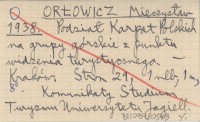 ORŁOWICZ Mieczysław
1938. Podział Karpat Polskich
na grupy górskie z punktu
widzenia turystycznego -
Kraków. Stron 29, 1 nlb, 1 m,
8° Komunikaty Studium
Turyzmu Uniwersytetu Jagiell.